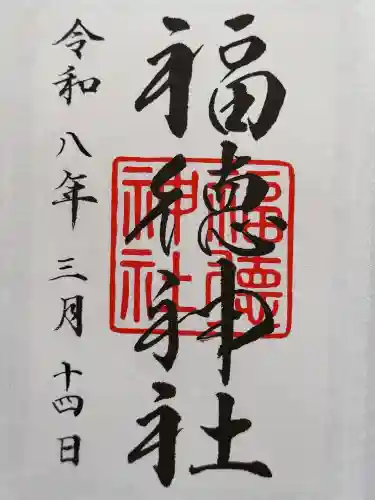 福徳神社
福徳神社
令和八年三月十四日